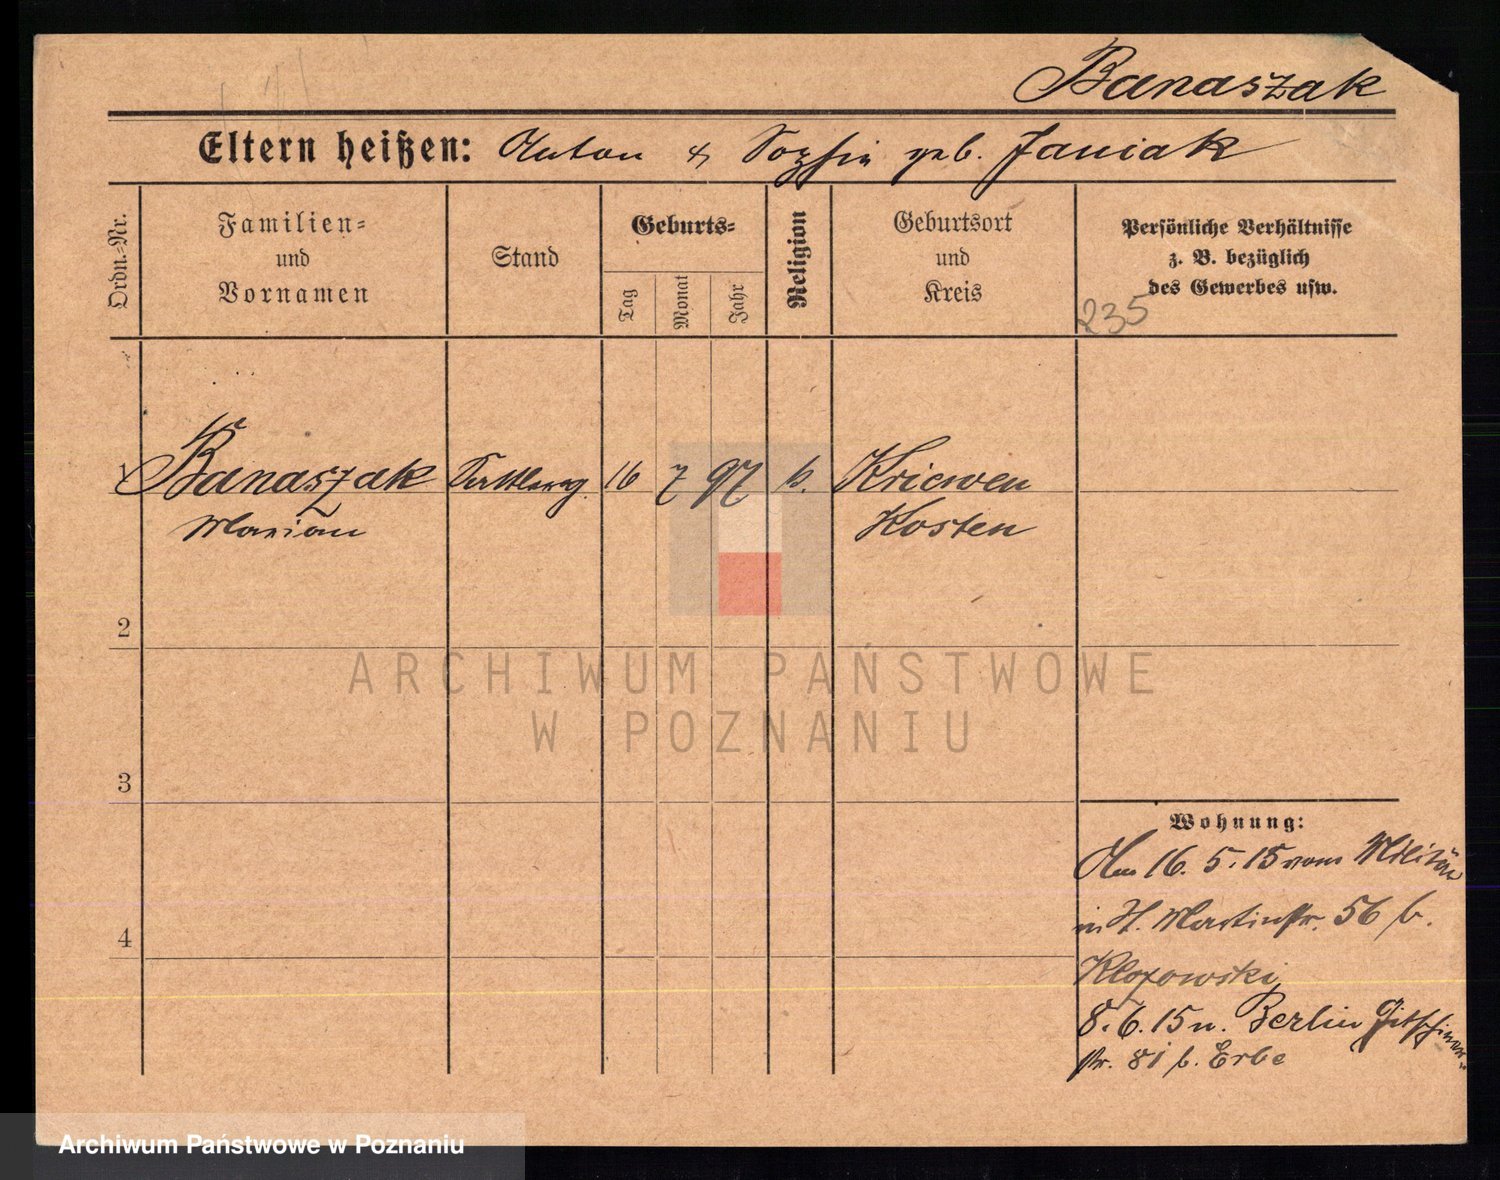 Banaszak
Eltern heißen: Anton & Sophie geb. Janiak
Ordn.-Nr.
Familien-
und
Vornamen
Stand
Geburts-
Tag
Monat
Jahr
Religion
Geburtsort
und
Kreis
Persönliche Verhältnisse
z. B. bezüglich
des Gewerbes usw.
235
1 Banaszak Sattlerg. 16 7 97 k. Kriewen
Marian Kosten
2
3
4
Wohnung:
Am 16. 5. 15 vom Militär
in St. Martinstr. 56 b.
8. 6. 15 n. Berlin Gitschiner-
str. 81 b. Erbe
ARCHIWUM PAŃSTWOWE
W POZNANIU
Archiwum Państwowe w Poznaniu